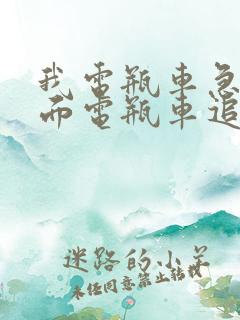 我电瓶车急
而电瓶车追
迷路的小羊
未经同意禁止转载